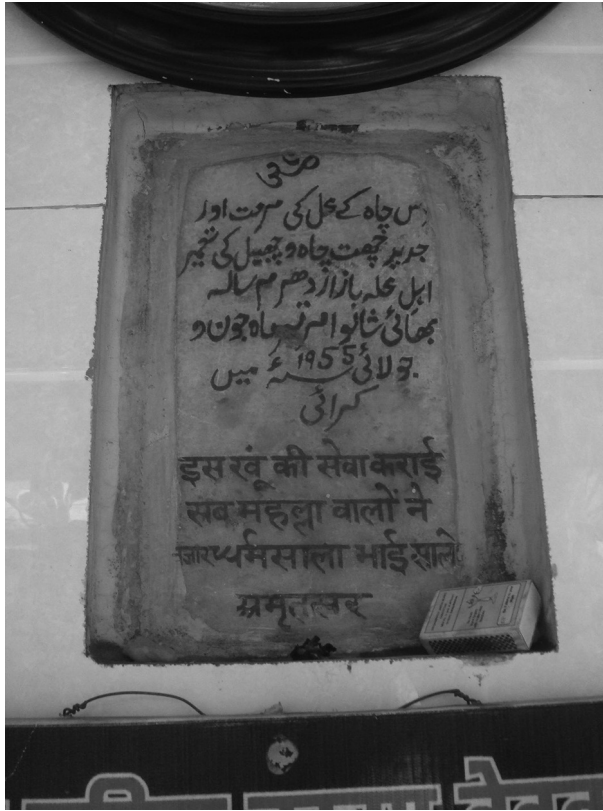 ॐ
اس چاہ کے محل کی مرمت اور
جدید چھت چاہ و چھبیل کی تعمیر
اہل محلہ بازار دھرم سالہ
بھائی شالو امرتسر ماہ جون و
جولائی سنہ 1955ء میں
کرائی
इस खूं की सेवा कराई
सब महल्ला वालों ने
धर्मसाला भाई साले
अमृतसर